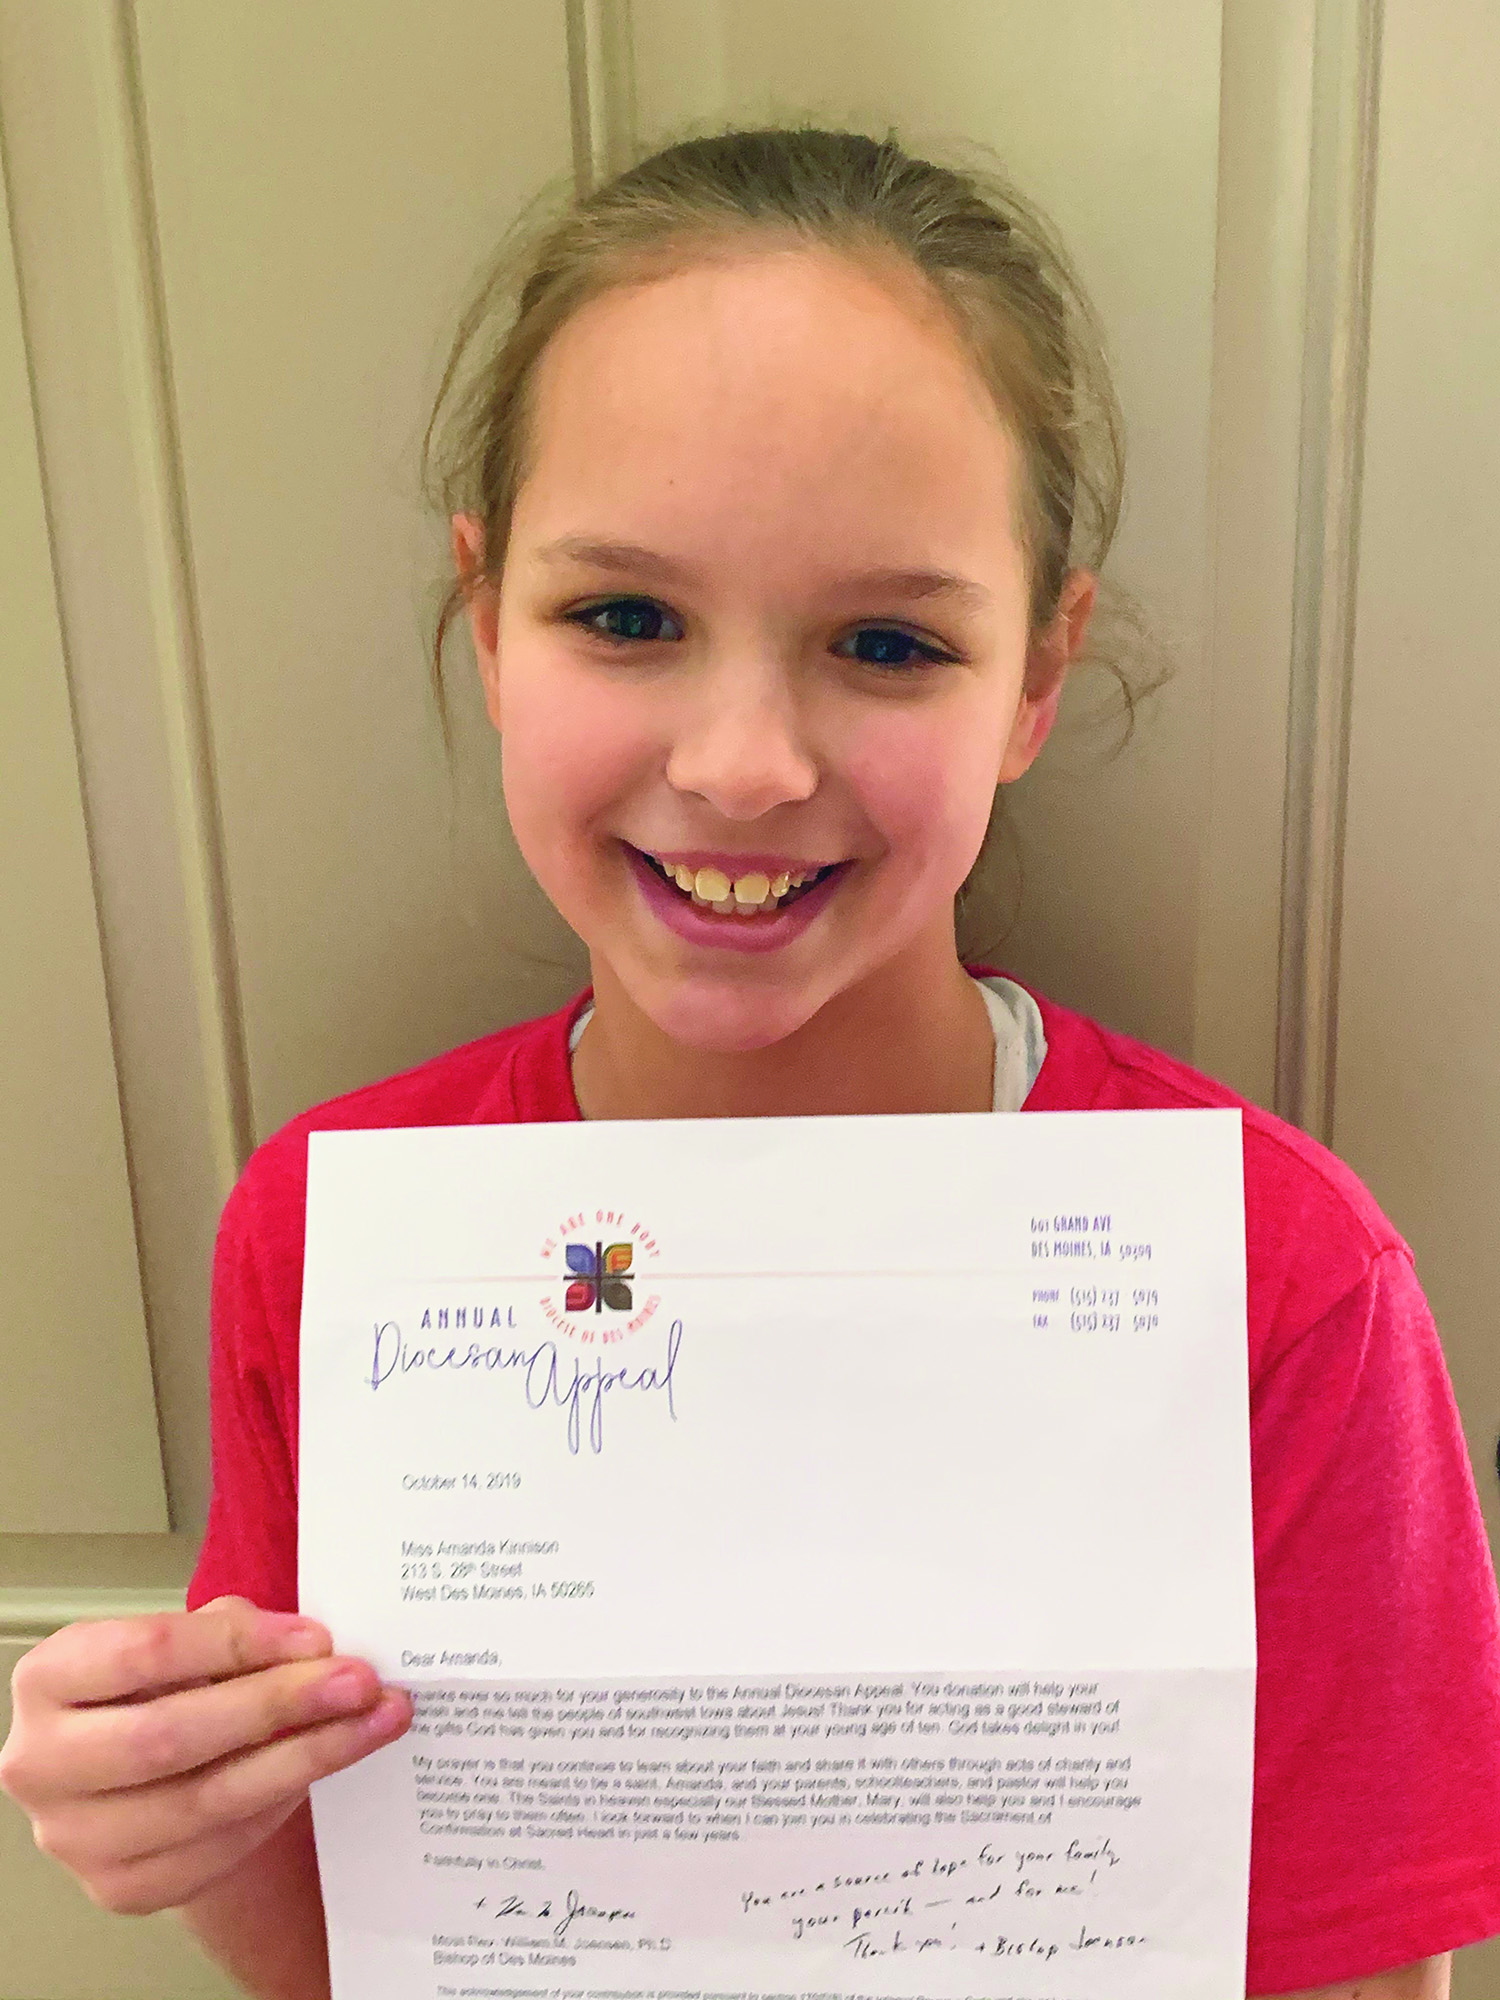 WE ARE ONE BODY
DIOCESE OF DES MOINES
ANNUAL
Diocesan Appeal
601 GRAND AVE
DES MOINES, IA 50309
PHONE (515) 237 5079
FAX (515) 237 5070
October 14, 2019
Miss Amanda Kinnison
213 S. 28th Street
West Des Moines, IA 50265
Dear Amanda,
Thanks ever so much for your generosity to the Annual Diocesan Appeal. You donation will help your
parish and me tell the people of southwest Iowa about Jesus! Thank you for acting as a good steward of
the gifts God has given you and for recognizing them at your young age of ten. God takes delight in you!
My prayer is that you continue to learn about your faith and share it with others through acts of charity and
service. You are meant to be a saint, Amanda, and your parents, schoolteachers, and pastor will help you
become one. The Saints in heaven especially our Blessed Mother, Mary, will also help you and I encourage
you to pray to them often. I look forward to when I can join you in celebrating the Sacrament of
Confirmation at Sacred Heart in just a few years.
Faithfully in Christ,
Most Rev. William M. Joensen, Ph.D
Bishop of Des Moines
You are a source of hope for your family,
your parish — and for me!
Thank you! + Bishop Joensen
This acknowledgement of your contribution is provided pursuant to section